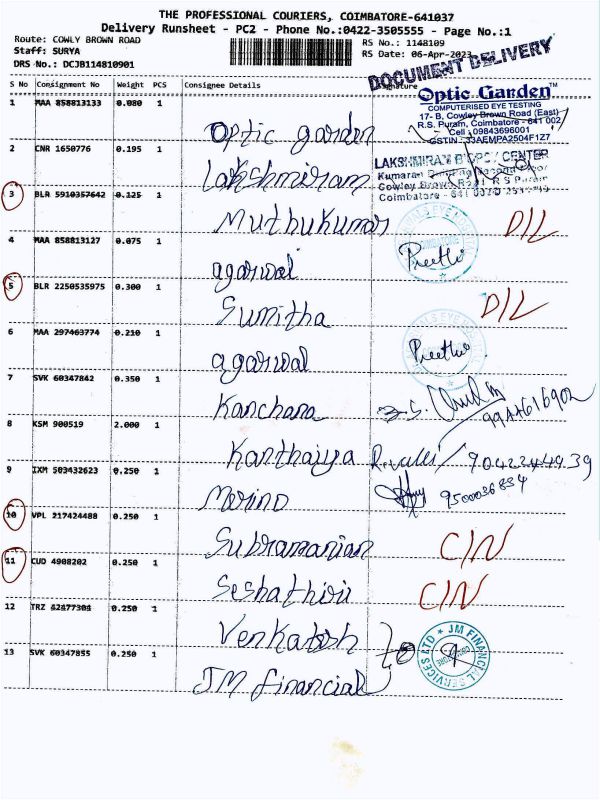 THE PROFESSIONAL COURIERS, COIMBATORE-641037
Delivery Runsheet - PC2 - Phone No.:0422-3505555 - Page No.:1
Route: COWLY BROWN ROAD
RS No.: 1148109
Staff: SURYA
RS Date: 06-Apr-2023
DRS No.: DCJB114810901
DOCUMENT DELIVERY
S No Consignment No Weight PCS Consignee Details Signature
Optic Garden™
COMPUTERISED EYE TESTING
17- B, Cowley Brown Road (East)
R.S. Puram, Coimbatore - 641 002
Cell : 09843696001
GSTIN : 33AEMPA2504F1Z7
1 MAA 858813133 0.080 1
Optic garden
2 CNR 1650776 0.195 1
LAKSHMIRAM BIOPSY CENTER
Kumaran
Cowley Brown Road R S Puram
Coimbatore - 641 002
Lakshmiram
3 BLR 5910357642 0.125 1
Muthukumar D/L
4 MAA 858813127 0.075 1
Preethi
agarwal
5 BLR 2250535975 0.300 1
Sumitha D/L
6 MAA 297463774 0.210 1
Preethi
agarwal
7 SVK 60347842 0.350 1
Kanchana
8 KSM 900519 2.000 1
Kanthaiya 9042244439
9 IXM 503432623 0.250 1
Merino 9500036834
10 VPL 217424488 0.250 1
Subramanian C/N
11 CUD 4908202 0.250 1
Seshathiri C/N
12 TRZ 42477304 0.250 1
Venkatesh
JM FINANCIAL SERVICES LTD
COIMBATORE
13 SVK 60347855 0.250 1
JM financial